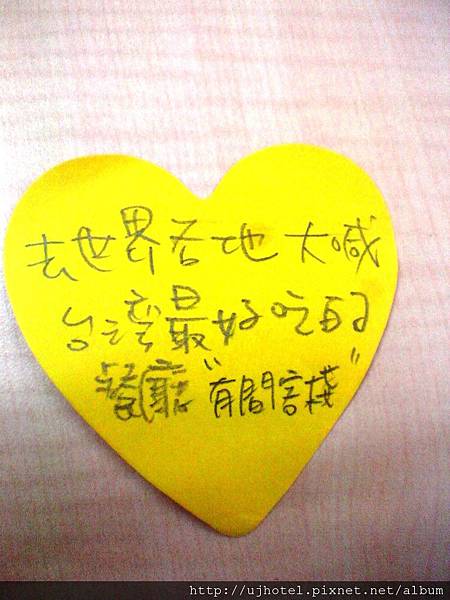 去世界各地大喊
台灣最好吃的
餐廳"有間客棧"
http://ujhotel.pixnet.net/album